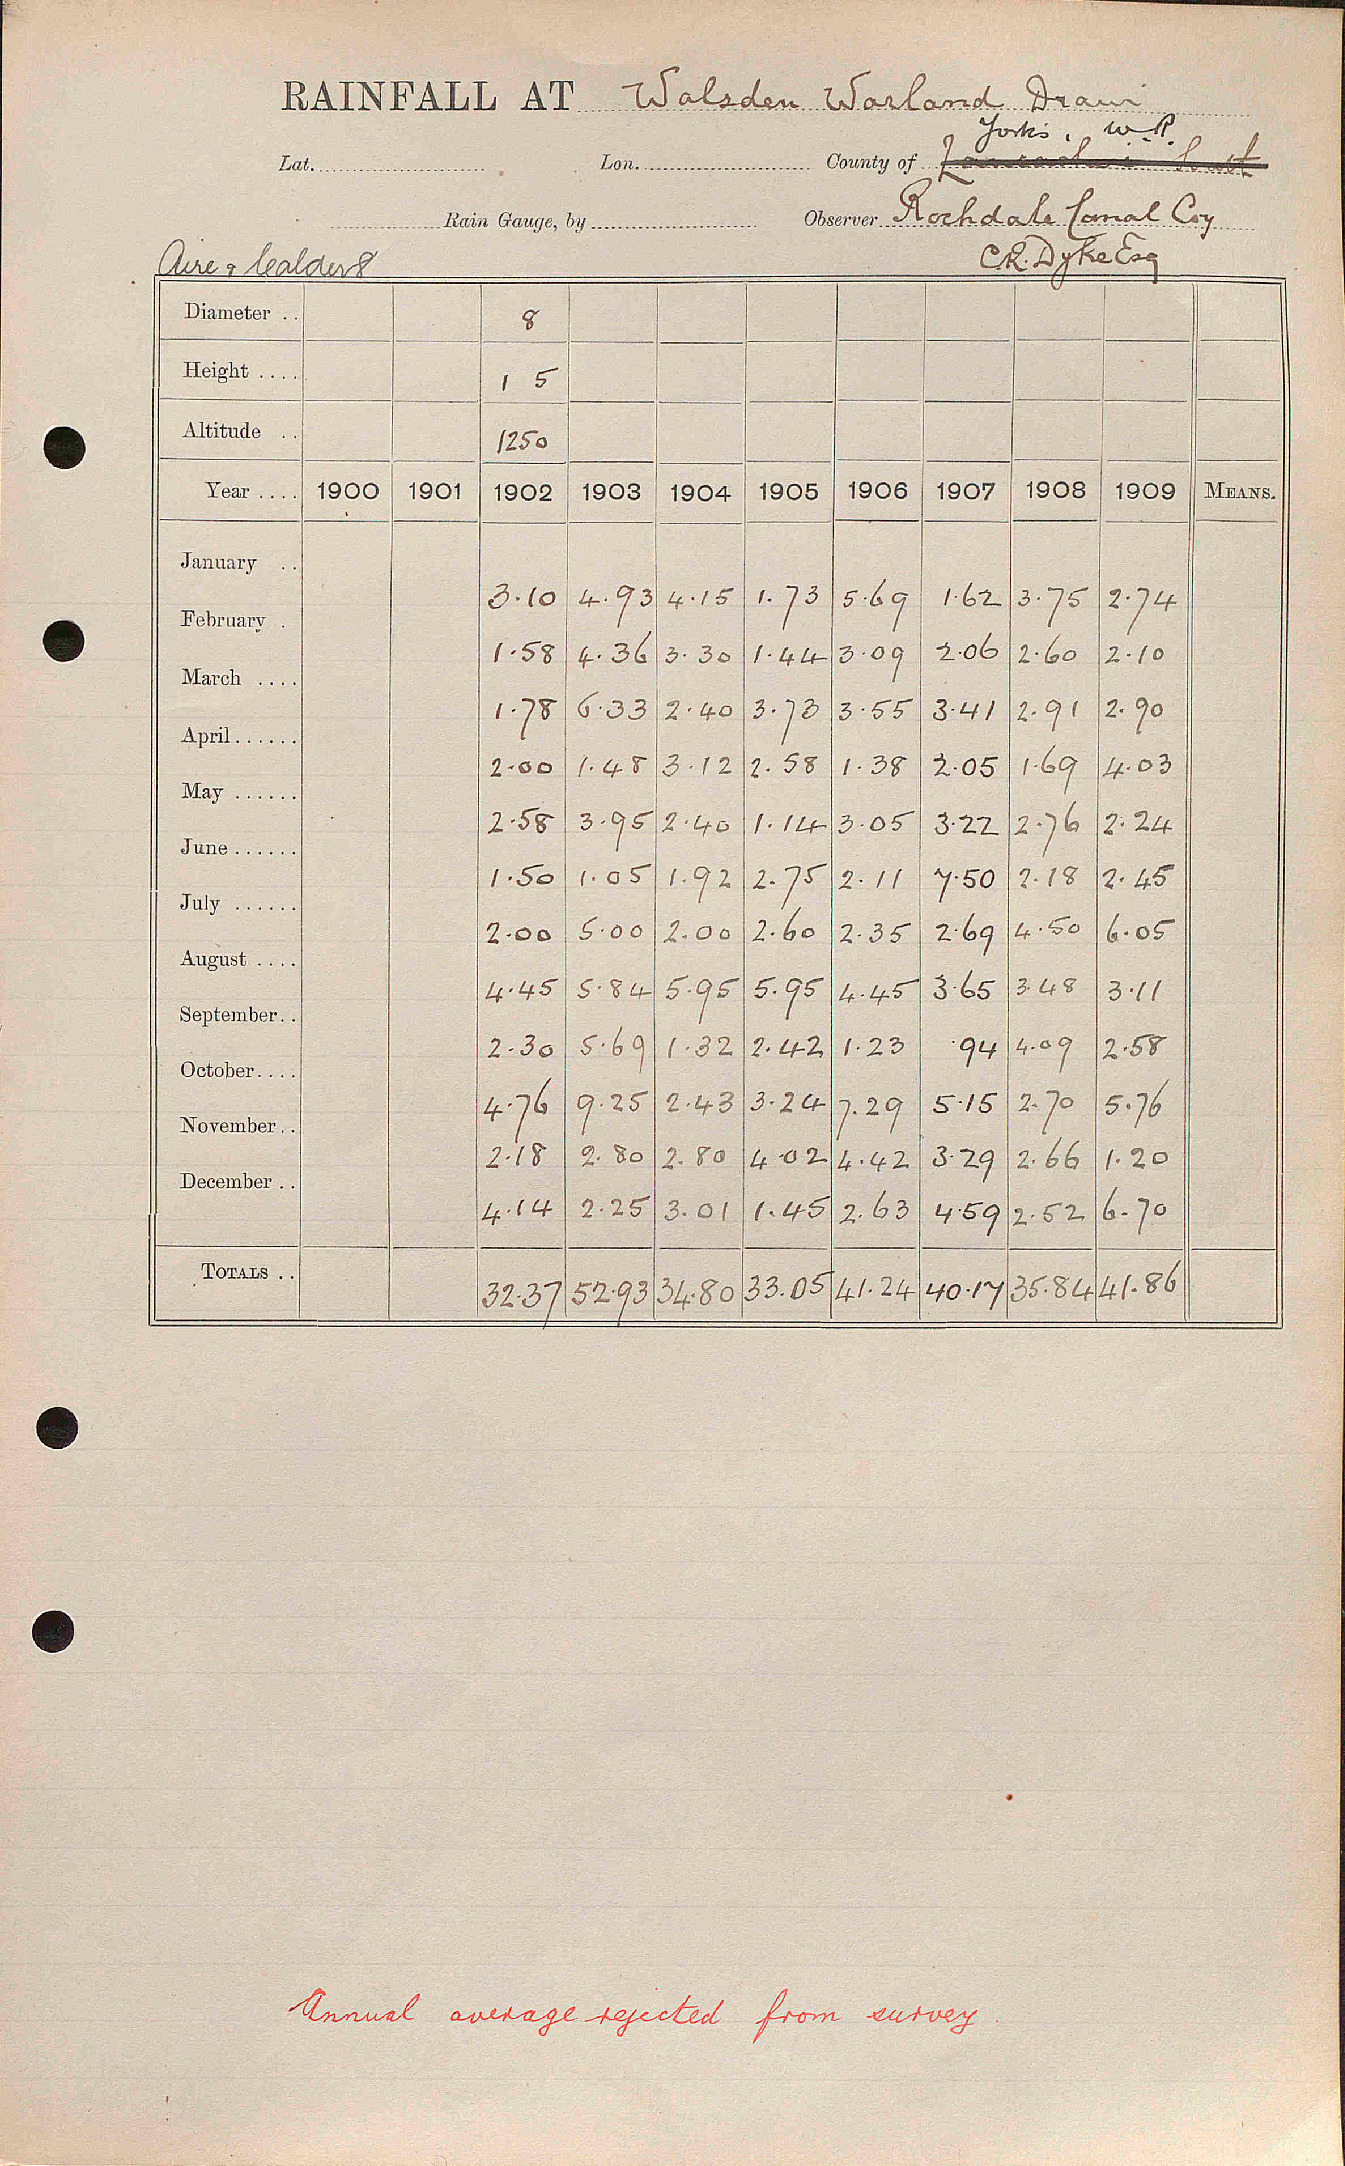 RAINFALL AT Walsden Warland Drain
Yorks, W.R.
Lat. Lon. County of
Rain Gauge, by Observer Rochdale Canal Coy
Aire & Calder 8 C.R. Dyke Esq
Diameter .. 8
Height .... 1 5
Altitude .. 1250
Year .... 1900 1901 1902 1903 1904 1905 1906 1907 1908 1909 MEANS.
January .. 3.10 4.93 4.15 1.73 5.69 1.62 3.75 2.74
February . 1.58 4.36 3.30 1.44 3.09 2.06 2.60 2.10
March .... 1.78 6.33 2.40 3.73 3.55 3.41 2.91 2.90
April...... 2.00 1.48 3.12 2.58 1.38 2.05 1.69 4.03
May ...... 2.58 3.95 2.40 1.14 3.05 3.22 2.76 2.24
June...... 1.50 1.05 1.92 2.75 2.11 7.50 2.18 2.45
July ...... 2.00 5.00 2.00 2.60 2.35 2.69 4.50 6.05
August .... 4.45 5.84 5.95 5.95 4.45 3.65 3.48 3.11
September.. 2.30 5.69 1.32 2.42 1.23 .94 4.09 2.58
October.... 4.76 9.25 2.43 3.24 7.29 5.15 2.70 5.76
November.. 2.18 2.80 2.80 4.02 4.42 3.29 2.66 1.20
December .. 4.14 2.25 3.01 1.45 2.63 4.59 2.52 6.70
TOTALS .. 32.37 52.93 34.80 33.05 41.24 40.17 35.84 41.86
Annual average rejected from survey